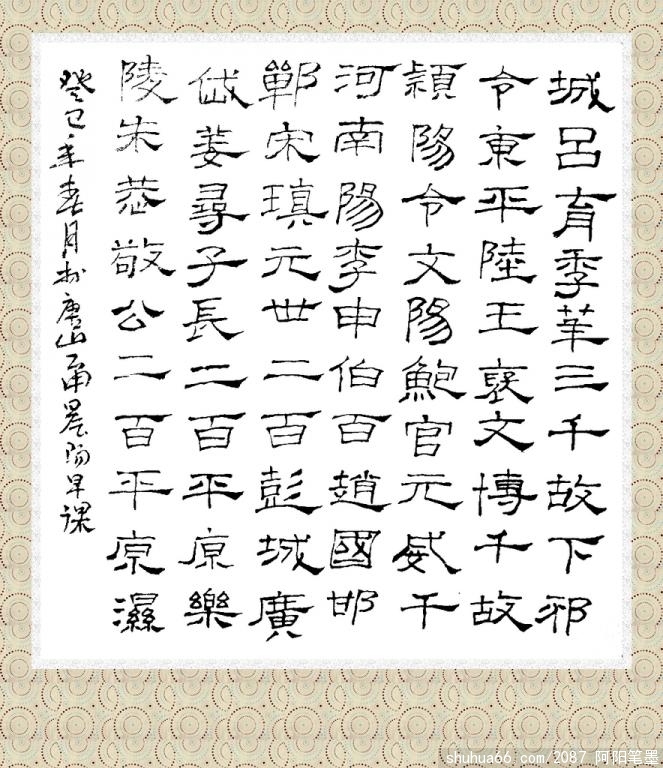 城呂育季華三千故下邳
令東平陸王褒文博千故
潁陽令文陽鮑宮元威千
河南陽李申伯百趙國邯
鄲宋瑱元世二百彭城廣
戚姜尋子長二百平原樂
陵朱恭敬公二百平原濕
癸巳年春月於唐山晨陽早課
shuhua66.com/2087 阿阳笔墨